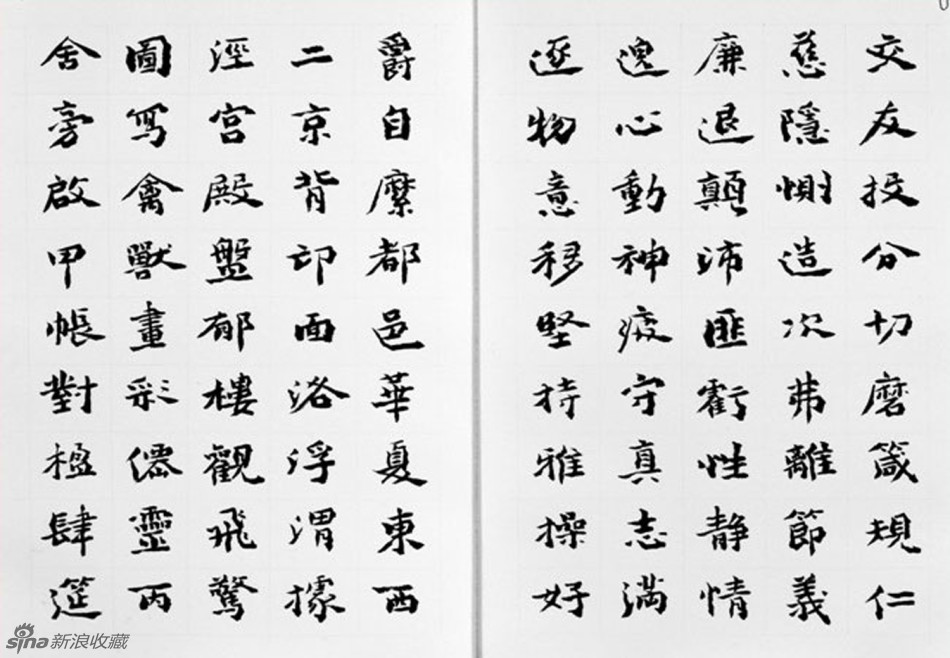 交友投分切磨箴規仁
慈隱惻造次弗離節義
廉退顛沛匪虧性静情
逸心動神疲守真志滿
逐物意移堅持雅操好
爵自縻都邑華夏東西
二京背邙面洛浮渭據
涇宮殿盤郁樓觀飛驚
圖寫禽獸畫彩僊靈丙
舍旁啟甲帳對楹肆筵
sina新浪收藏